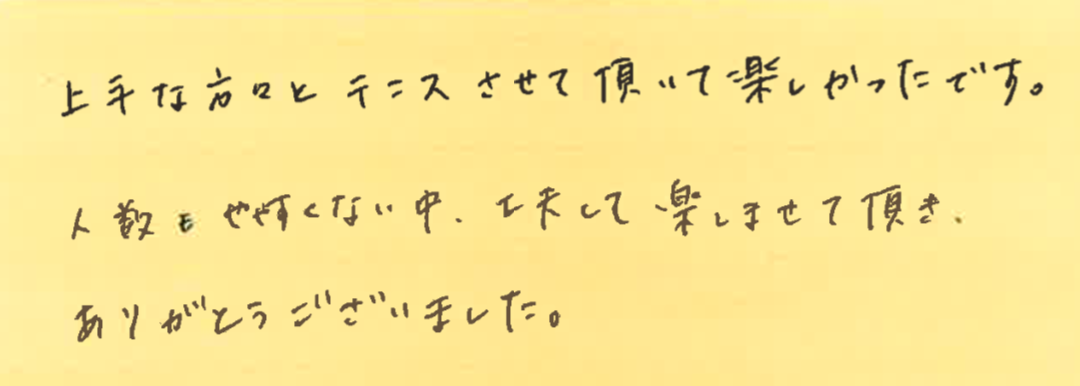 上手な方々とテニスさせて頂いて楽しかったです。
人数もやすくない中、工夫して楽しませて頂き、
ありがとうございました。